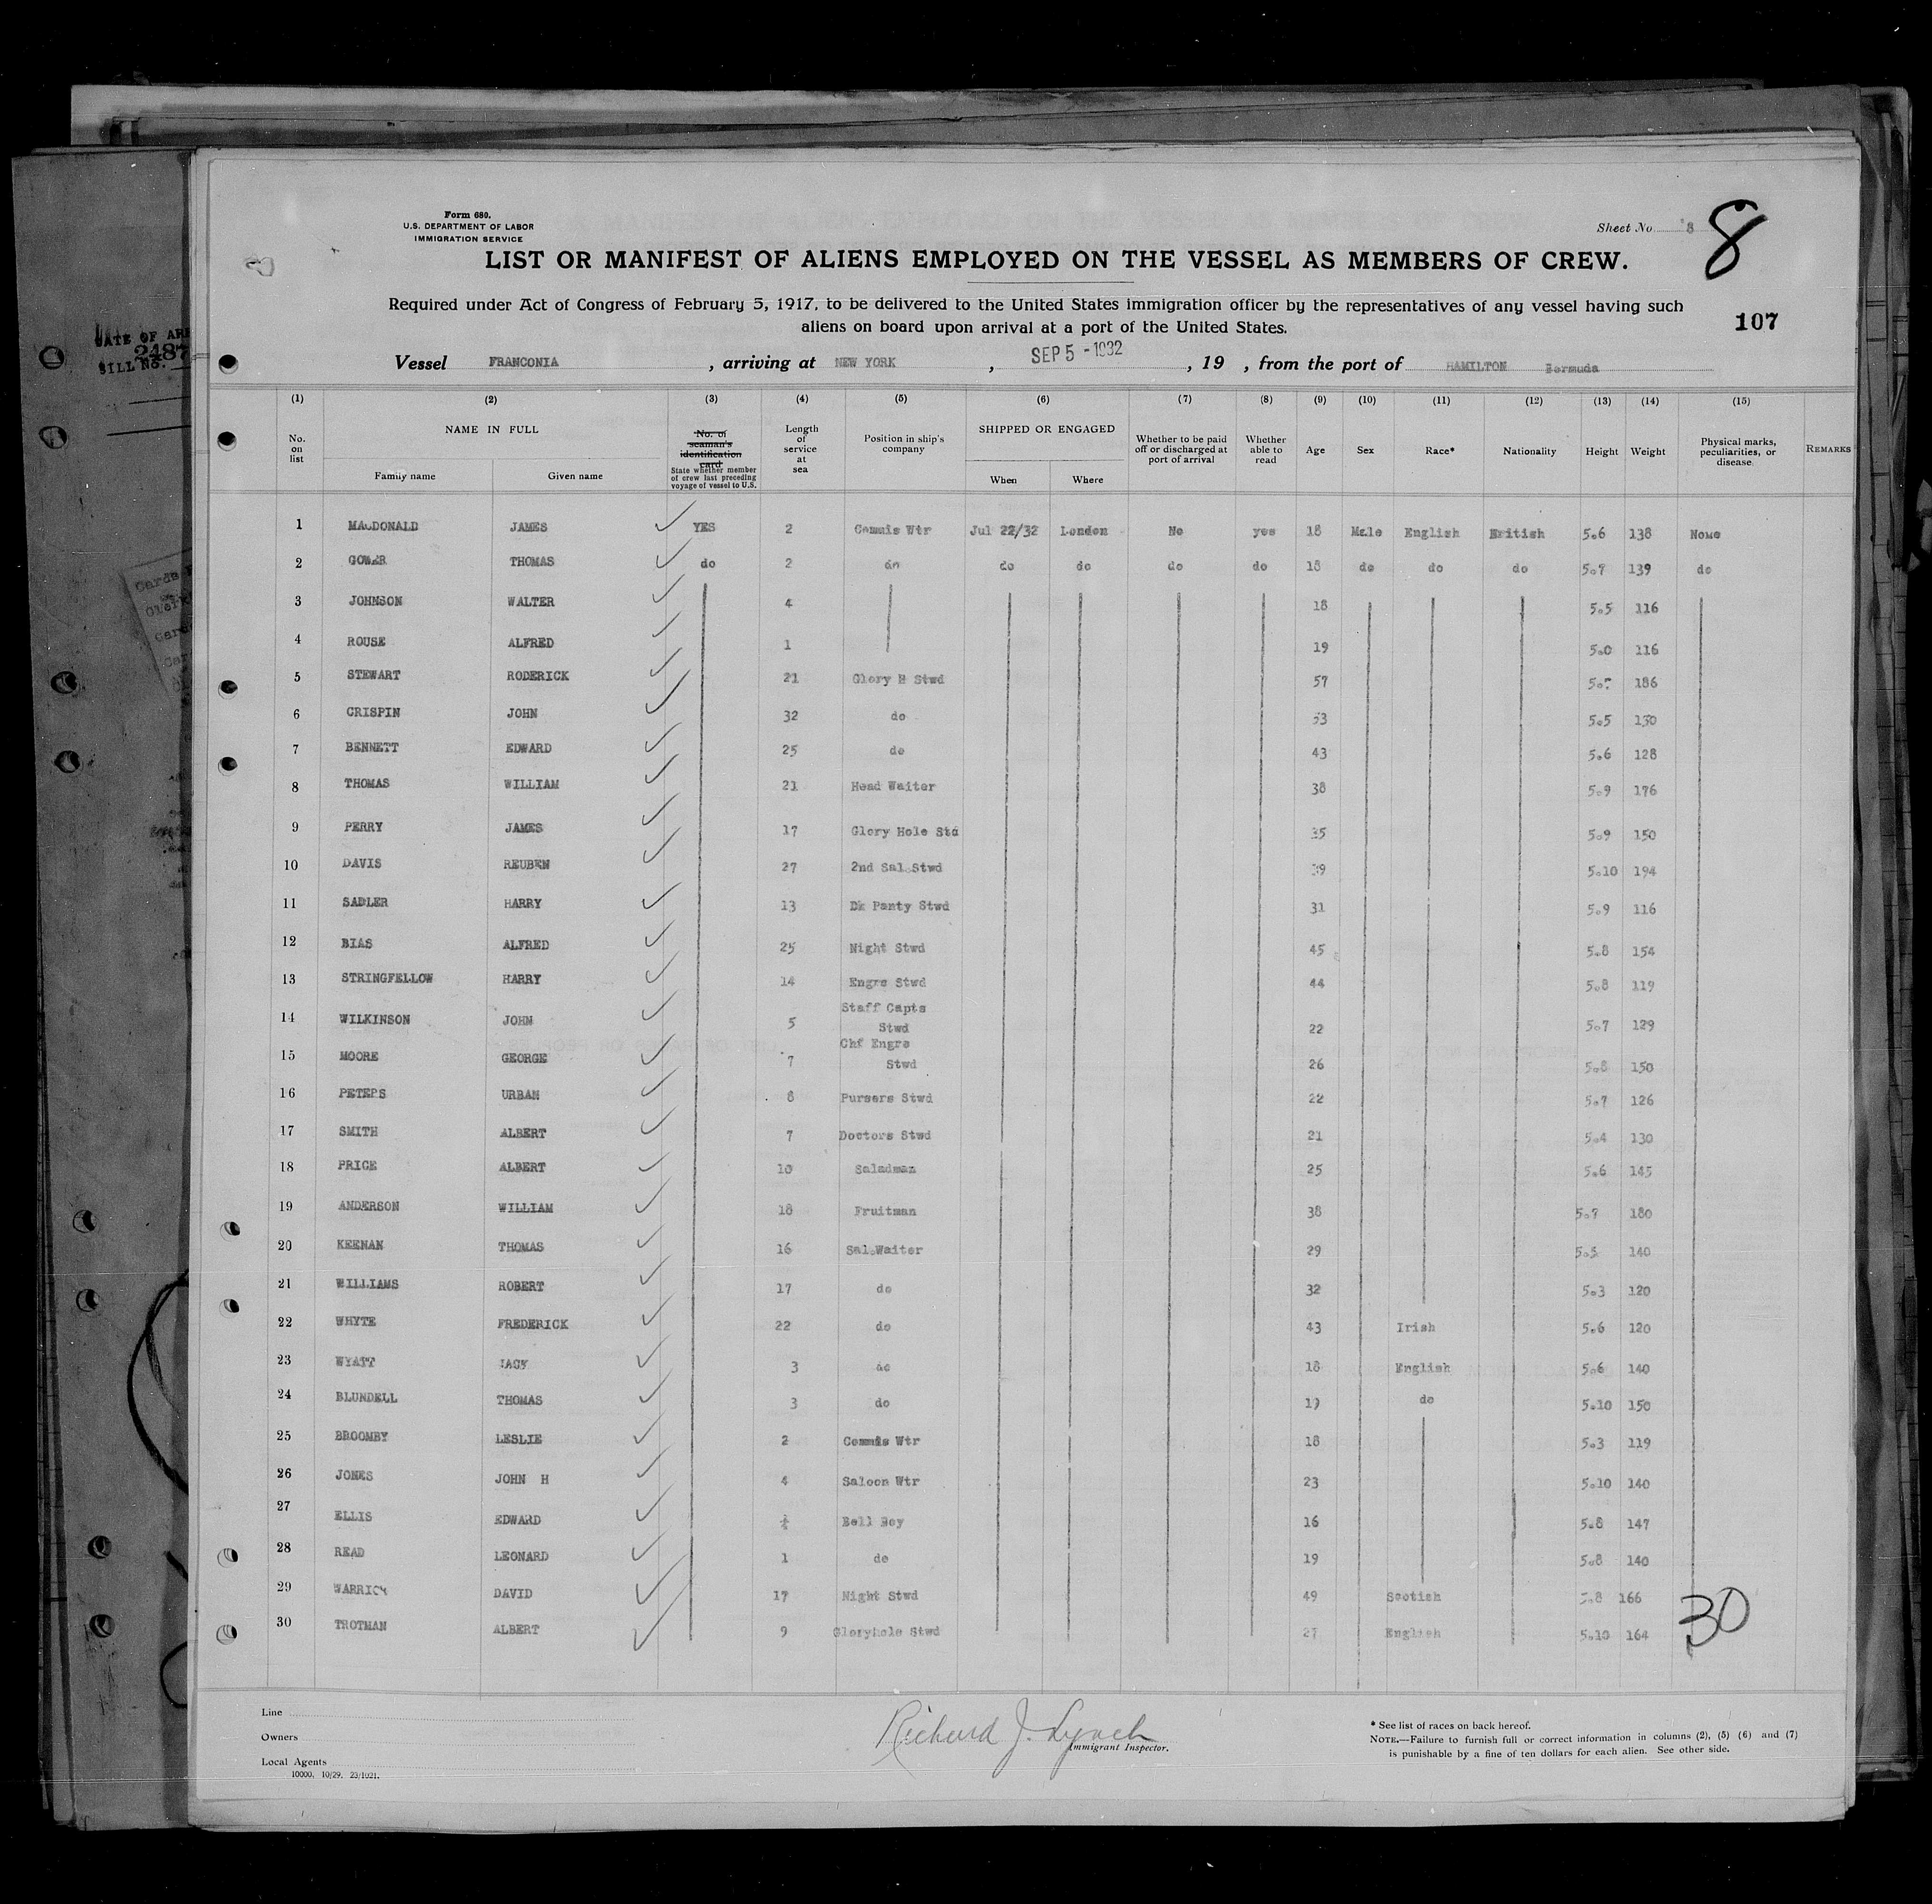 Form 680.
U.S. DEPARTMENT OF LABOR
IMMIGRATION SERVICE
Sheet No 8
8
LIST OR MANIFEST OF ALIENS EMPLOYED ON THE VESSEL AS MEMBERS OF CREW.
Required under Act of Congress of February 5, 1917, to be delivered to the United States immigration officer by the representatives of any vessel having such
aliens on board upon arrival at a port of the United States.
107
Vessel FRANCONIA, arriving at NEW YORK, SEP 5 - 1932, 19 , from the port of HAMILTON Bermuda
DATE OF ARR
2487
BILL No.
(1) (2) (3) (4) (5) (6) (7) (8) (9) (10) (11) (12) (13) (14) (15)
No. on list
NAME IN FULL
Family name Given name
No. of seaman's identification card
State whether member of crew last preceding voyage of vessel to U.S.
Length of service at sea
Position in ship's company
SHIPPED OR ENGAGED
When Where
Whether to be paid off or discharged at port of arrival
Whether able to read
Age Sex Race* Nationality Height Weight
Physical marks, peculiarities, or disease
REMARKS
1 MACDONALD JAMES YES 2 Commis Wtr Jul 22/32 London No yes 18 Male English British 5.6 138 None
2 GOWER THOMAS do 2 do do do do do 18 do do do 5.7 139 do
3 JOHNSON WALTER 4 18 5.5 116
4 ROUSE ALFRED 1 19 5.0 116
5 STEWART RODERICK 21 Glory H Stwd 57 186
6 CRISPIN JOHN 32 do 53 5.5 130
7 BENNETT EDWARD 25 do 43 5.6 128
8 THOMAS WILLIAM 21 Head Waiter 38 5.9 176
9 PERRY JAMES 17 Glory Hole Std 35 5.9 150
10 DAVIS REUBEN 27 2nd Sal.Stwd 39 5.10 194
11 SADLER HARRY 13 Dk Panty Stwd 31 5.9 116
12 BIAS ALFRED 25 Night Stwd 45 5.8 154
13 STRINGFELLOW HARRY 14 Engrs Stwd 44 5.8 119
14 WILKINSON JOHN 5 Staff Capts Stwd 22 5.7 129
15 MOORE GEORGE 7 Chf Engrs Stwd 26 5.8 150
16 PETERS URBAN 8 Pursers Stwd 22 5.7 126
17 SMITH ALBERT 7 Doctors Stwd 21 5.4 130
18 PRICE ALBERT 10 Saladman 25 5.6 145
19 ANDERSON WILLIAM 18 Fruitman 38 5.7 180
20 KEENAN THOMAS 16 Sal.Waiter 29 140
21 WILLIAMS ROBERT 17 do 32 5.3 120
22 WHYTE FREDERICK 22 do 43 Irish 5.6 120
23 WYATT JACK 3 do 18 English 5.6 140
24 BLUNDELL THOMAS 3 do 19 do 5.10 150
25 BROOMBY LESLIE 2 Commis Wtr 18 5.3 119
26 JONES JOHN H 4 Saloon Wtr 23 5.10 140
27 ELLIS EDWARD Bell Boy 16 5.8 147
28 READ LEONARD 1 do 19 5.8 140
29 WARRICK DAVID 17 Night Stwd 49 Scotish 5.8 166
30 TROTMAN ALBERT 9 Gloryhole Stwd 27 English 5.10 164
30
Line
Owners
Local Agents
10000. 10/29. 23/1021.
Richard J. Lynch
Immigrant Inspector.
* See list of races on back hereof.
NOTE.—Failure to furnish full or correct information in columns (2), (5) (6) and (7)
is punishable by a fine of ten dollars for each alien. See other side.